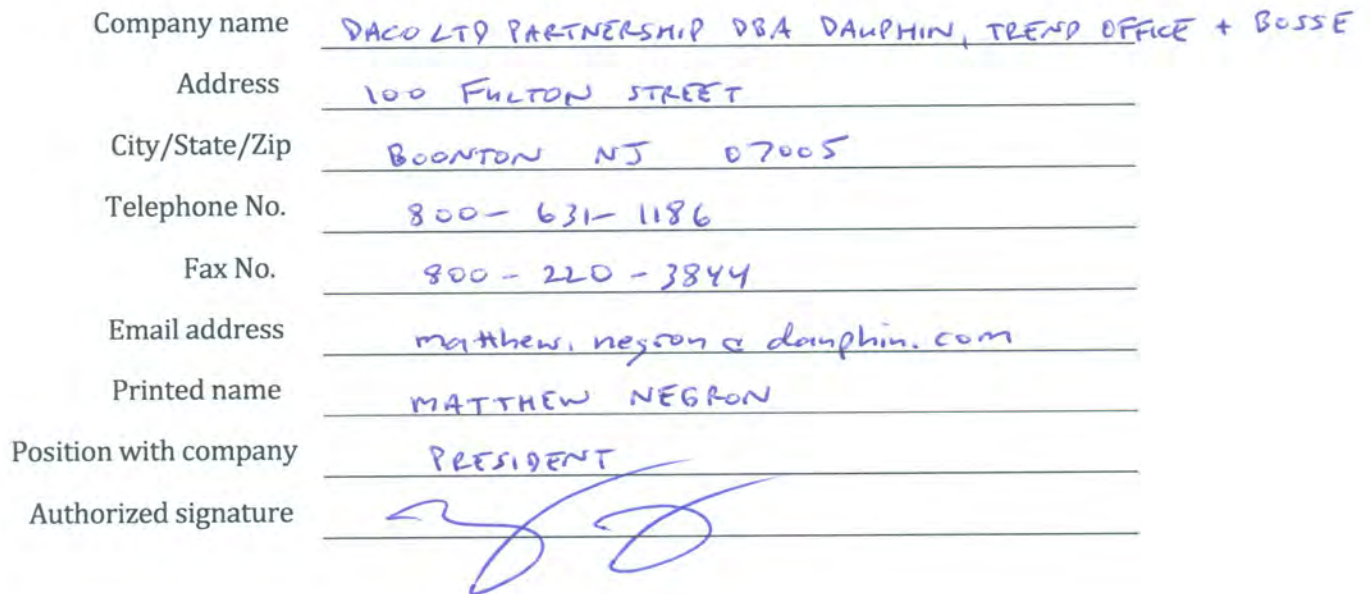 Company name DACO LTD PARTNERSHIP DBA DAUPHIN, TREND OFFICE + BOSSE
Address 100 FULTON STREET
City/State/Zip BOONTON NJ 07005
Telephone No. 800-631-1186
Fax No. 800-220-3844
Email address matthew.negron@dauphin.com
Printed name MATTHEW NEGRON
Position with company PRESIDENT
Authorized signature